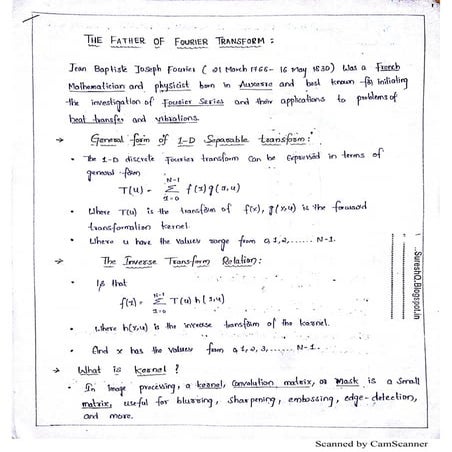 THE FATHER OF FOURIER TRANSFORM :
Jean Baptiste Joseph Fourier ( 21 March 1768- 16 May 1830) Was a French
Mathematician and physicist born in Auxerre and best known for initiating
the investigation of Fourier Series and their applications to problems of
heat transfer and vibrations.
→ General form of 1-D Separable transform :
• The 1-D discrete Fourier transform can be expressed in terms of
general form
T(u) = N-1 Σ x=0 f(x) g(x,u)
• Where T(u) is the transform of f(x), g(x,u) is the forward
transformation kernel.
• Where u have the values range from 0,1,2,...... N-1.
→ The Inverse Transform Relation:
• Is that
f(x) = N-1 Σ x=0 T(u) h(x,u)
• where h(x,u) is the inverse transform of the kernel.
• And x has the values from 0,1,2,3,..... N-1.
→ What is kernel ?
• In image processing, a kernel, Convolution matrix, or Mask is a small
matrix, useful for blurring, sharpening, embossing, edge-detection,
and more.
SureshQ.Blogspot.in
Scanned by CamScanner